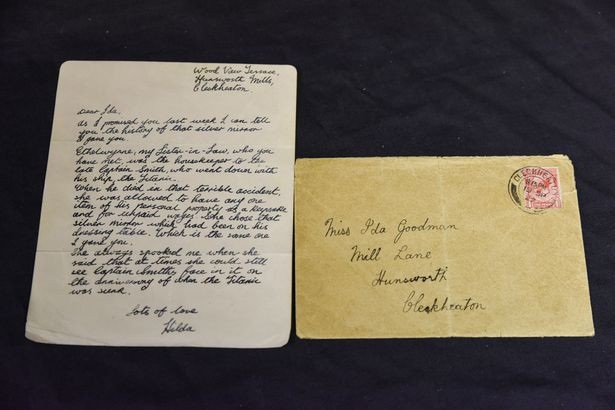 Wood View Terrace,
Hunsworth Mills,
Cleckheaton.
Dear Ida,
As I promised you last week I can tell
you the history of that silver mirror
I gave you.
Ethelwynne, my Sister-in-Law, who you
have met, was the housekeeper to the
late Captain Smith, who went down with
his ship the Titanic.
When he died in that terrible accident,
she was allowed to have any one
item of his personal property as a keepsake
and for unpaid wages. She chose that
silver mirror which had been on his
dressing table. Which is the same one
I gave you.
She always spooked me when she
said that at times she could still
see Captain Smiths face in it on
the anniversary of when the Titanic
was sunk.
Lots of love
Hilda
Miss Ida Goodman
Mill Lane
Hunsworth
Cleckheaton